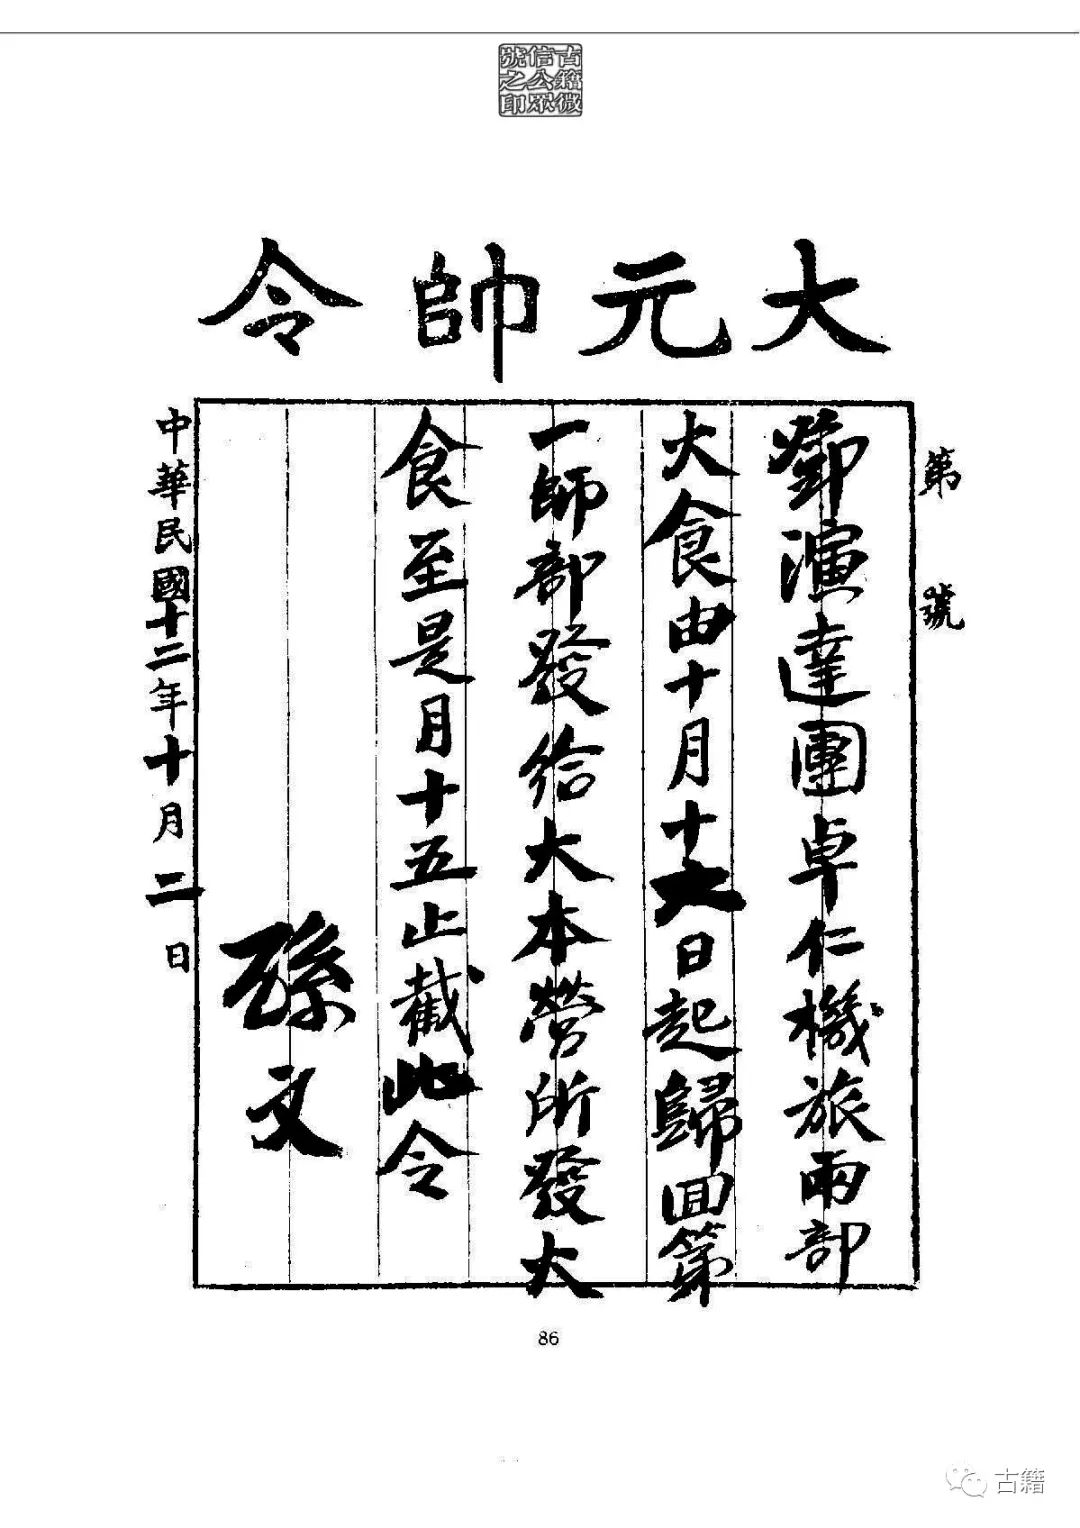 古籍微
信公眾
號之印
大元帥令
第　號
鄧演達團卓仁機旅兩部
火食由十月十六日起歸回第
一師部發給大本營所發火
食至是月十五止截此令
孫文
中華民國十二年十月二日
86
古籍